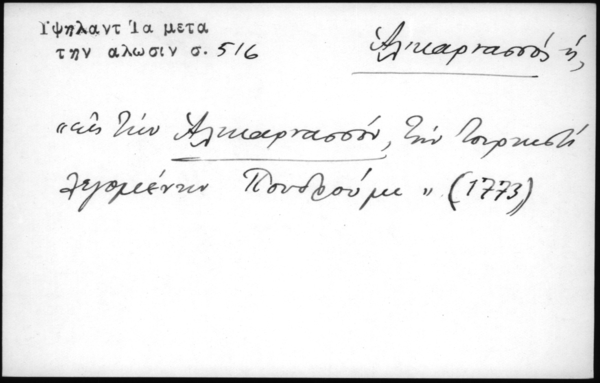 Ὑψηλαντ Ἱα μετα
την αλωσιν σ. 516
Ἁλικαρνασσός ἡ,
"εἰς τὴν Ἁλικαρνασσόν, τὴν τουρκιστὶ
λεγομένην Πουδρούμι" (1773)